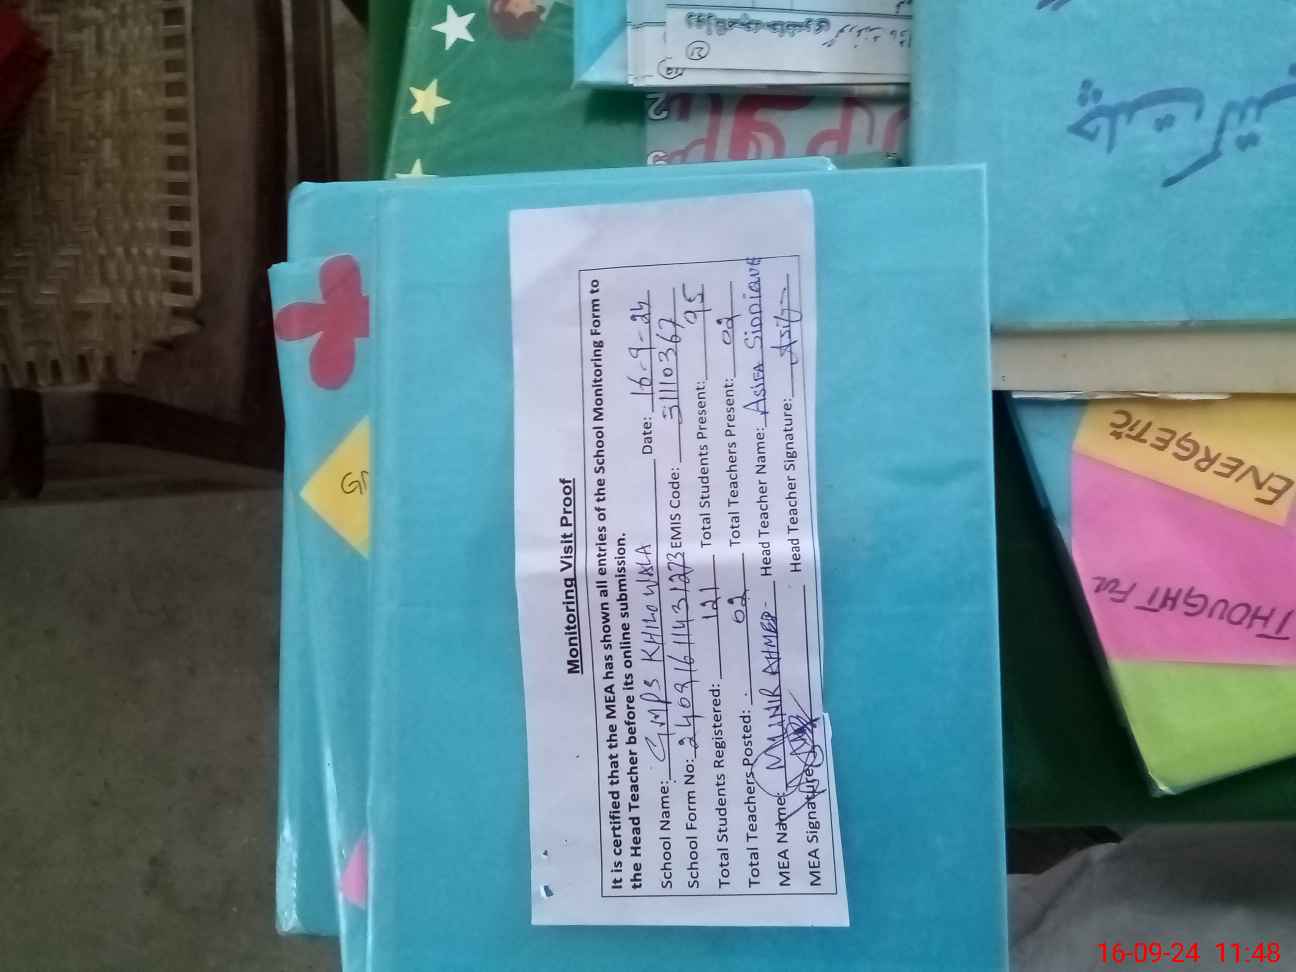 Monitoring Visit Proof
It is certified that the MEA has shown all entries of the School Monitoring Form to
the Head Teacher before its online submission.
School Name: GMPS KHILO WALA Date: 16-9-24
School Form No: 2409161143 1273 EMIS Code: 31110367
Total Students Registered: 121 Total Students Present: 95
Total Teachers Posted: 02 Total Teachers Present: 02
MEA Name: MUNIR AHMED Head Teacher Name: ASIFA SIDDIQUE
MEA Signature: Head Teacher Signature: Asifa
ENERGETIC
THOUGHT FUL
16-09-24 11:48